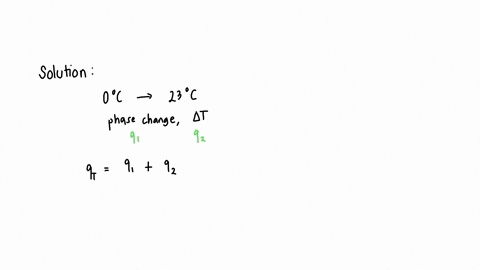 Solution:
0°C → 23°C
phase change, ΔT
q₁ q₂
q_T = q₁ + q₂